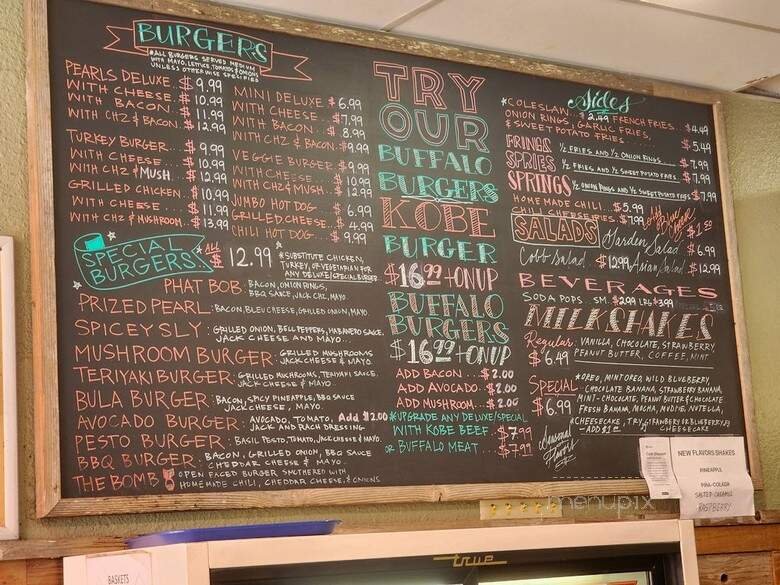 BURGERS
*ALL BURGERS SERVED MEDIUM
WITH MAYO, LETTUCE, TOMATO & ONIONS
UNLESS OTHERWISE SPECIFIED
PEARLS DELUXE $9.99
WITH CHEESE $10.99
WITH BACON $11.99
WITH CHZ & BACON $12.99
TURKEY BURGER $9.99
WITH CHEESE $10.99
WITH CHZ & MUSH $12.99
GRILLED CHICKEN $10.99
WITH CHEESE $11.99
WITH CHZ & MUSHROOM $13.99
MINI DELUXE $6.99
WITH CHEESE $7.99
WITH BACON $8.99
WITH CHZ & BACON $9.99
VEGGIE BURGER $9.99
WITH CHEESE $10.99
WITH CHZ & MUSH $12.99
JUMBO HOT DOG $6.99
GRILLED CHEESE $4.99
CHILI HOT DOG $9.99
SPECIAL BURGERS
ALL $12.99
*SUBSTITUTE CHICKEN,
TURKEY, OR VEGETARIAN FOR
ANY DELUXE/SPECIAL BURGER
PHAT BOB: BACON, ONION RINGS,
BBQ SAUCE, JACK CHZ, MAYO
PRIZED PEARL: BACON, BLEU CHEESE, GRILLED ONION, MAYO
SPICEY SLY: GRILLED ONION, BELL PEPPERS, HABANERO SAUCE,
JACK CHEESE AND MAYO
MUSHROOM BURGER: GRILLED MUSHROOMS
JACK CHEESE & MAYO
TERIYAKI BURGER: GRILLED MUSHROOMS, TERIYAKI SAUCE,
JACK CHEESE & MAYO
BULA BURGER: BACON, SPICY PINEAPPLE, BBQ SAUCE
JACK CHEESE, MAYO
AVOCADO BURGER: AVOCADO, TOMATO, Add $2.00
JACK AND RACH DRESSING
PESTO BURGER: BASIL PESTO, TOMATO, JACK CHEESE & MAYO
BBQ BURGER: BACON, GRILLED ONION, BBQ SAUCE
CHEDDAR CHEESE & MAYO
THE BOMB! OPEN FACED BURGER SMOTHERED WITH
HOMEMADE CHILI, CHEDDAR CHEESE, & ONIONS
TRY
OUR
BUFFALO
BURGERS
KOBE
BURGER
$16.99 + ON UP
BUFFALO
BURGERS
$16.99 + ON UP
ADD BACON $2.00
ADD AVOCADO $2.00
ADD MUSHROOM $2.00
*UPGRADE ANY DELUXE/SPECIAL
WITH KOBE BEEF $7.99
OR BUFFALO MEAT $7.99
Sides
*COLESLAW $2.49 FRENCH FRIES $4.49
ONION RINGS, GARLIC FRIES,
& SWEET POTATO FRIES $5.49
FRINGS ½ FRIES AND ½ ONION RINGS $7.99
SPRIES ½ FRIES AND ½ SWEET POTATO FRIES $7.99
SPRINGS ½ ONION RINGS AND ½ SWEET POTATO FRIES $7.99
HOMEMADE CHILI $5.99
CHILI CHEESE FRIES $7.99
SALADS
Garden Salad $6.99
Cobb Salad $12.99 Asian Salad $12.99
BEVERAGES
SODA POPS SM. $2.99 LRG $3.99
MILKSHAKES
Regular: VANILLA, CHOCOLATE, STRAWBERRY
$6.49 PEANUT BUTTER, COFFEE, MINT
SPECIAL *OREO, MINT OREO, WILD BLUEBERRY,
CHOCOLATE BANANA, STRAWBERRY BANANA,
$6.99 MINT-CHOCOLATE, PEANUT BUTTER & CHOCOLATE
FRESH BANANA, MOCHA, MUDPIE, NUTELLA,
*CHEESECAKE, TRY STRAWBERRY OR BLUEBERRY
CHEESECAKE
Seasonal
Flavors
NEW FLAVORS SHAKES
PINEAPPLE
PINA-COLADA
SALTED CARAMEL
RASPBERRY
menupix
true
BASKETS